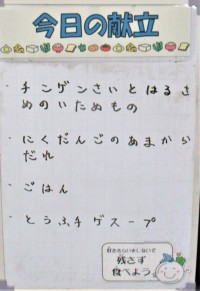 今日の献立
・チンゲンさいとはるさ
めのいためもの
・にくだんごのあまから
だれ
・ごはん
・とうふチゲスープ
残さず
食べよう